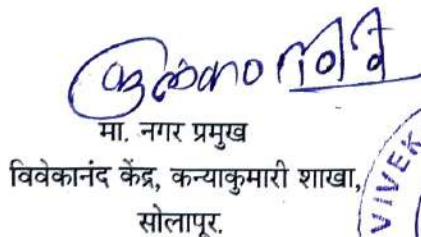 मा. नगर प्रमुख
विवेकानंद केंद्र, कन्याकुमारी शाखा,
सोलापूर.
VIVEK